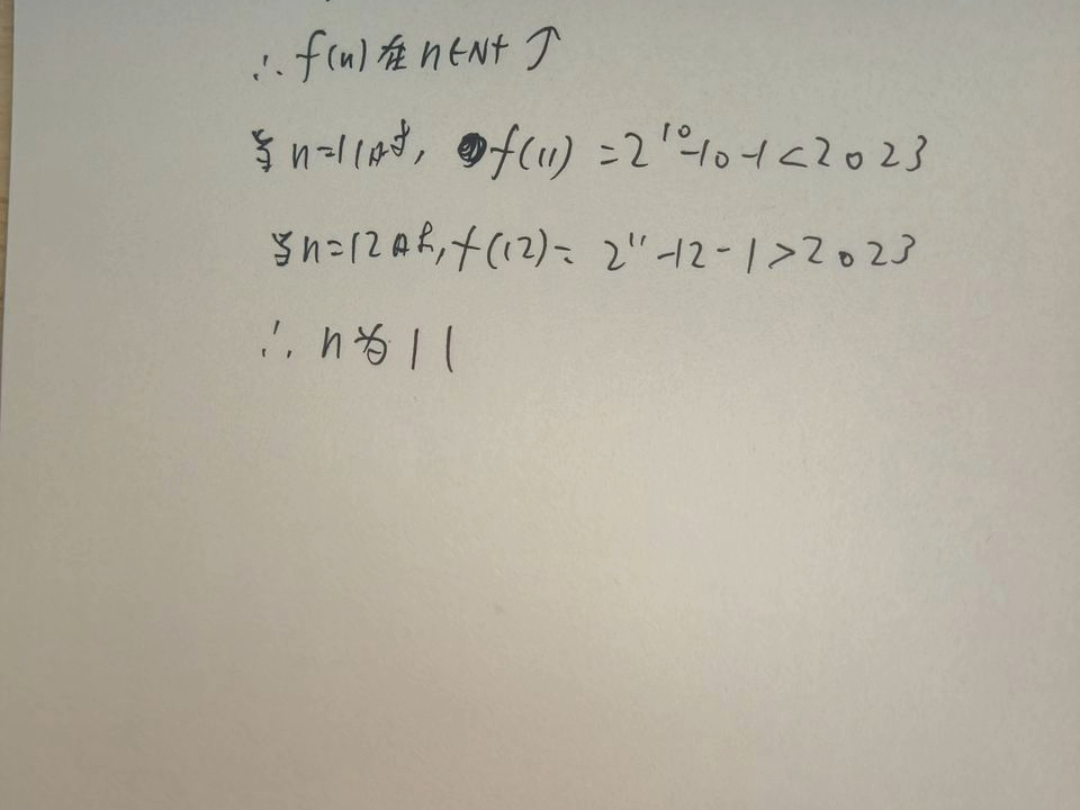 ∴ f(n) 在 n∈N+ ↑
当 n=11时, f(11) = 2¹⁰-10-1<2023
当n=12时, f(12)= 2¹¹-12-1>2023
∴ n为11